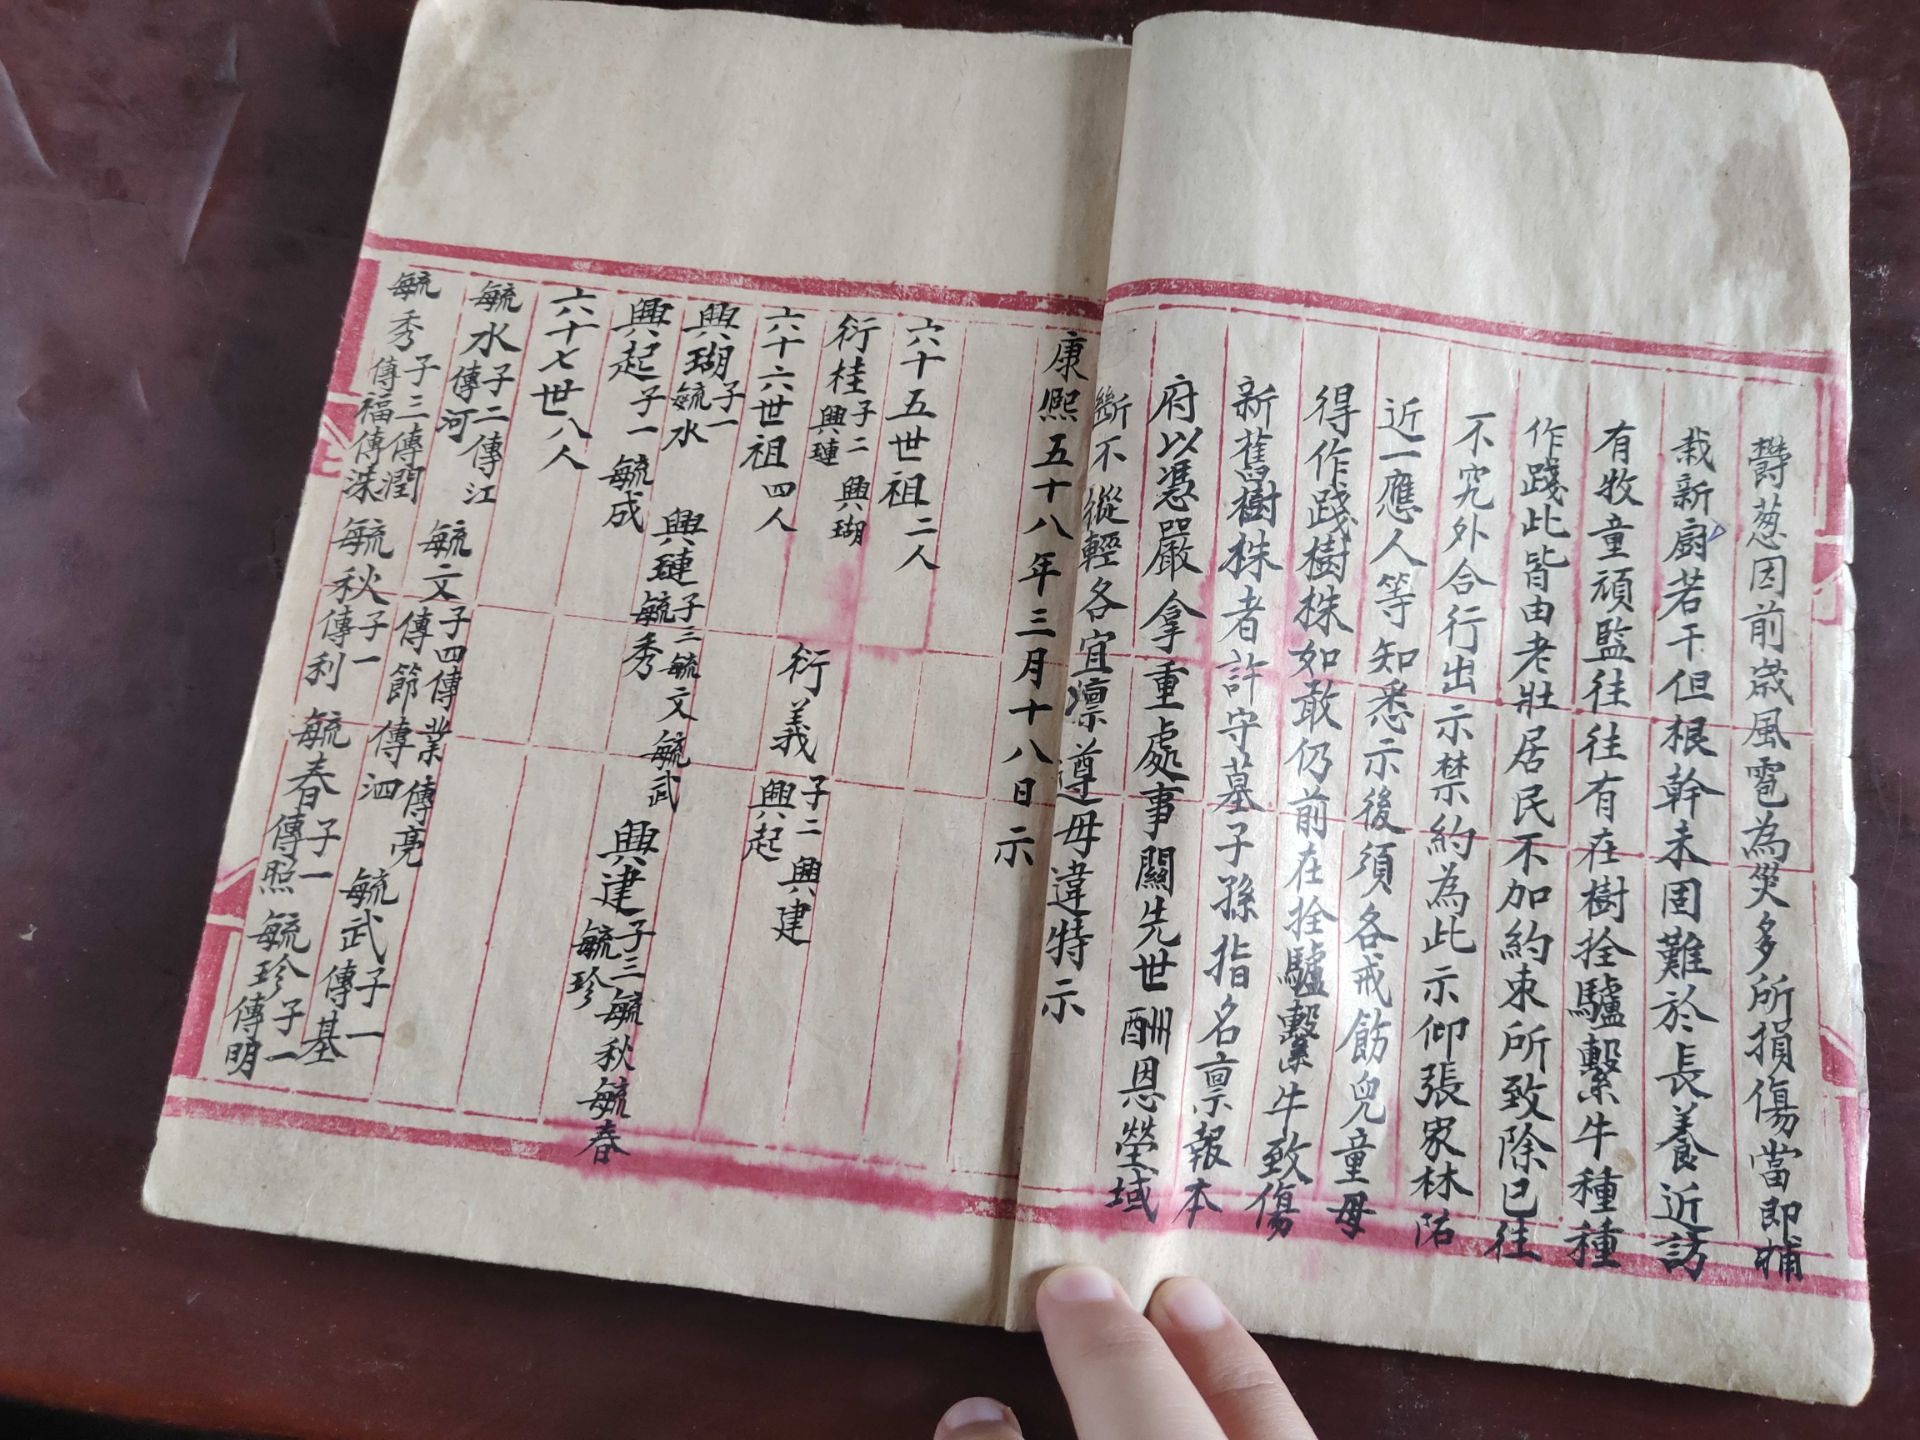 欝葱因前歲風雹為災多所損傷當即補
栽新廚若干但根幹未固難於長養近訪
有牧童頑監往往有在樹拴驢繫牛種種
作踐此皆由老壯居民不加約束所致除已往
不究外合行出示禁約為此示仰張家林陌
近一應人等知悉示後須各戒飭兒童毋
得作踐樹株如敢仍前在拴驢繫牛致傷
新舊樹株者許守墓子孫指名禀報本
府以憑嚴拿重處事關先世酬恩塋域
斷不縱輕各宜凛遵毋違特示
康熙五十八年三月十八日示
六十五世祖二人
衍桂子二興璉興瑚 衍義子二興建興起
六十六世祖四人
興瑚子一毓水 興璉子三毓文毓武毓秀 興建子三毓秋毓春毓珍
興起子一毓成
六十七世八人
毓水子二傳江傳河 毓文子四傳業傳亮傳節傳泗 毓武子一傳基
毓秀子三傳潤傳福傳渫 毓秋子一傳利 毓春子一傳照 毓珍子一傳明